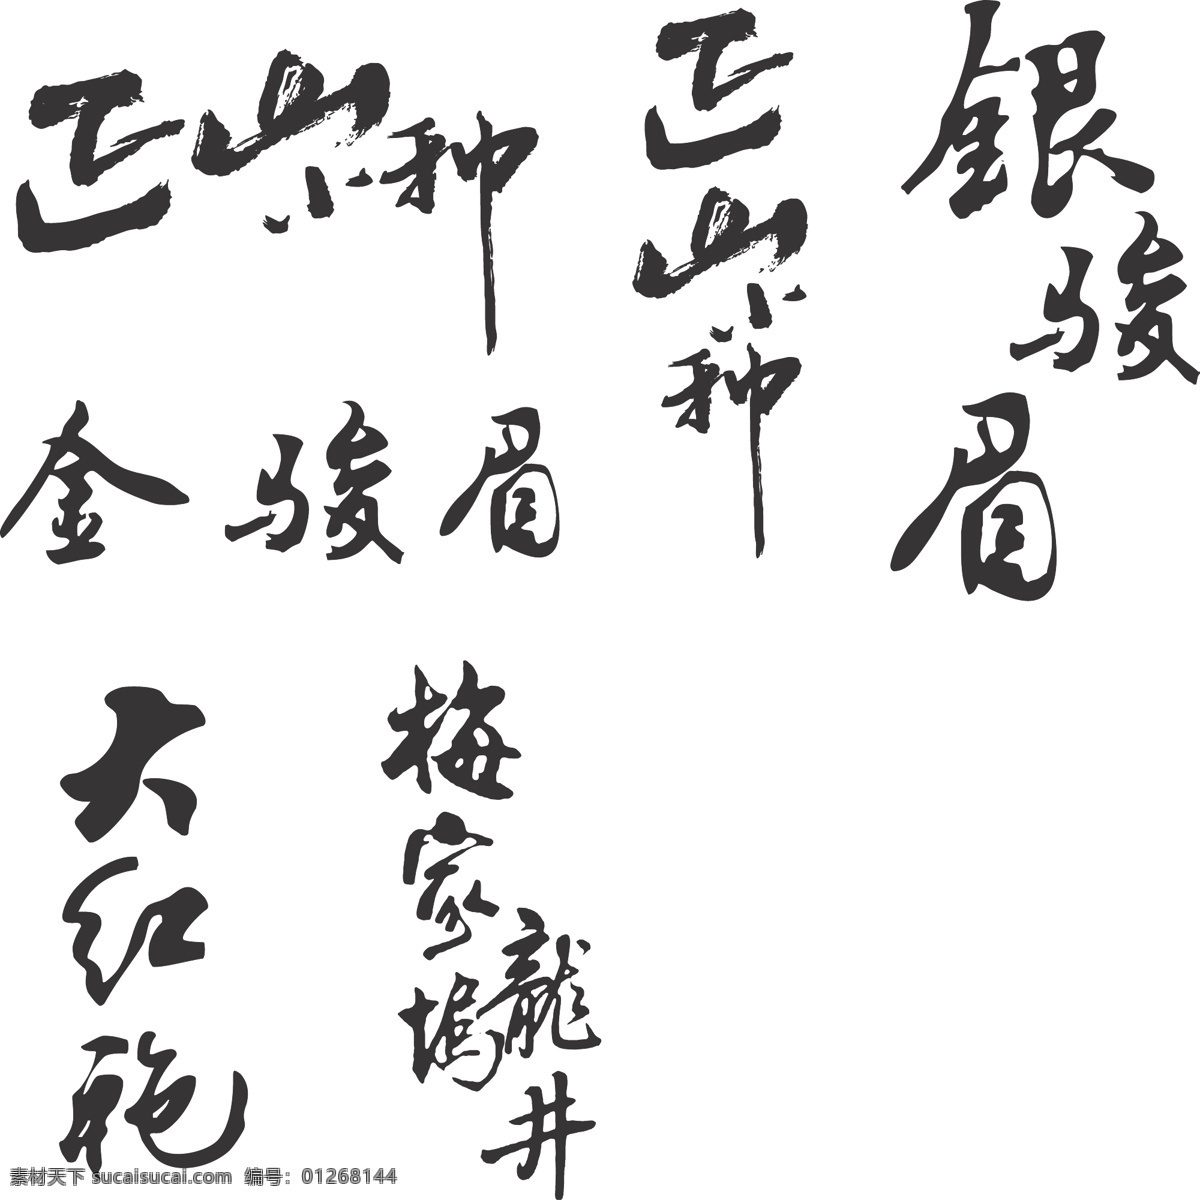 正山小种
金骏眉
正山小种
銀骏眉
大红袍
梅家坞
龍井
素材天下 sucaisucai.com 编号：01268144